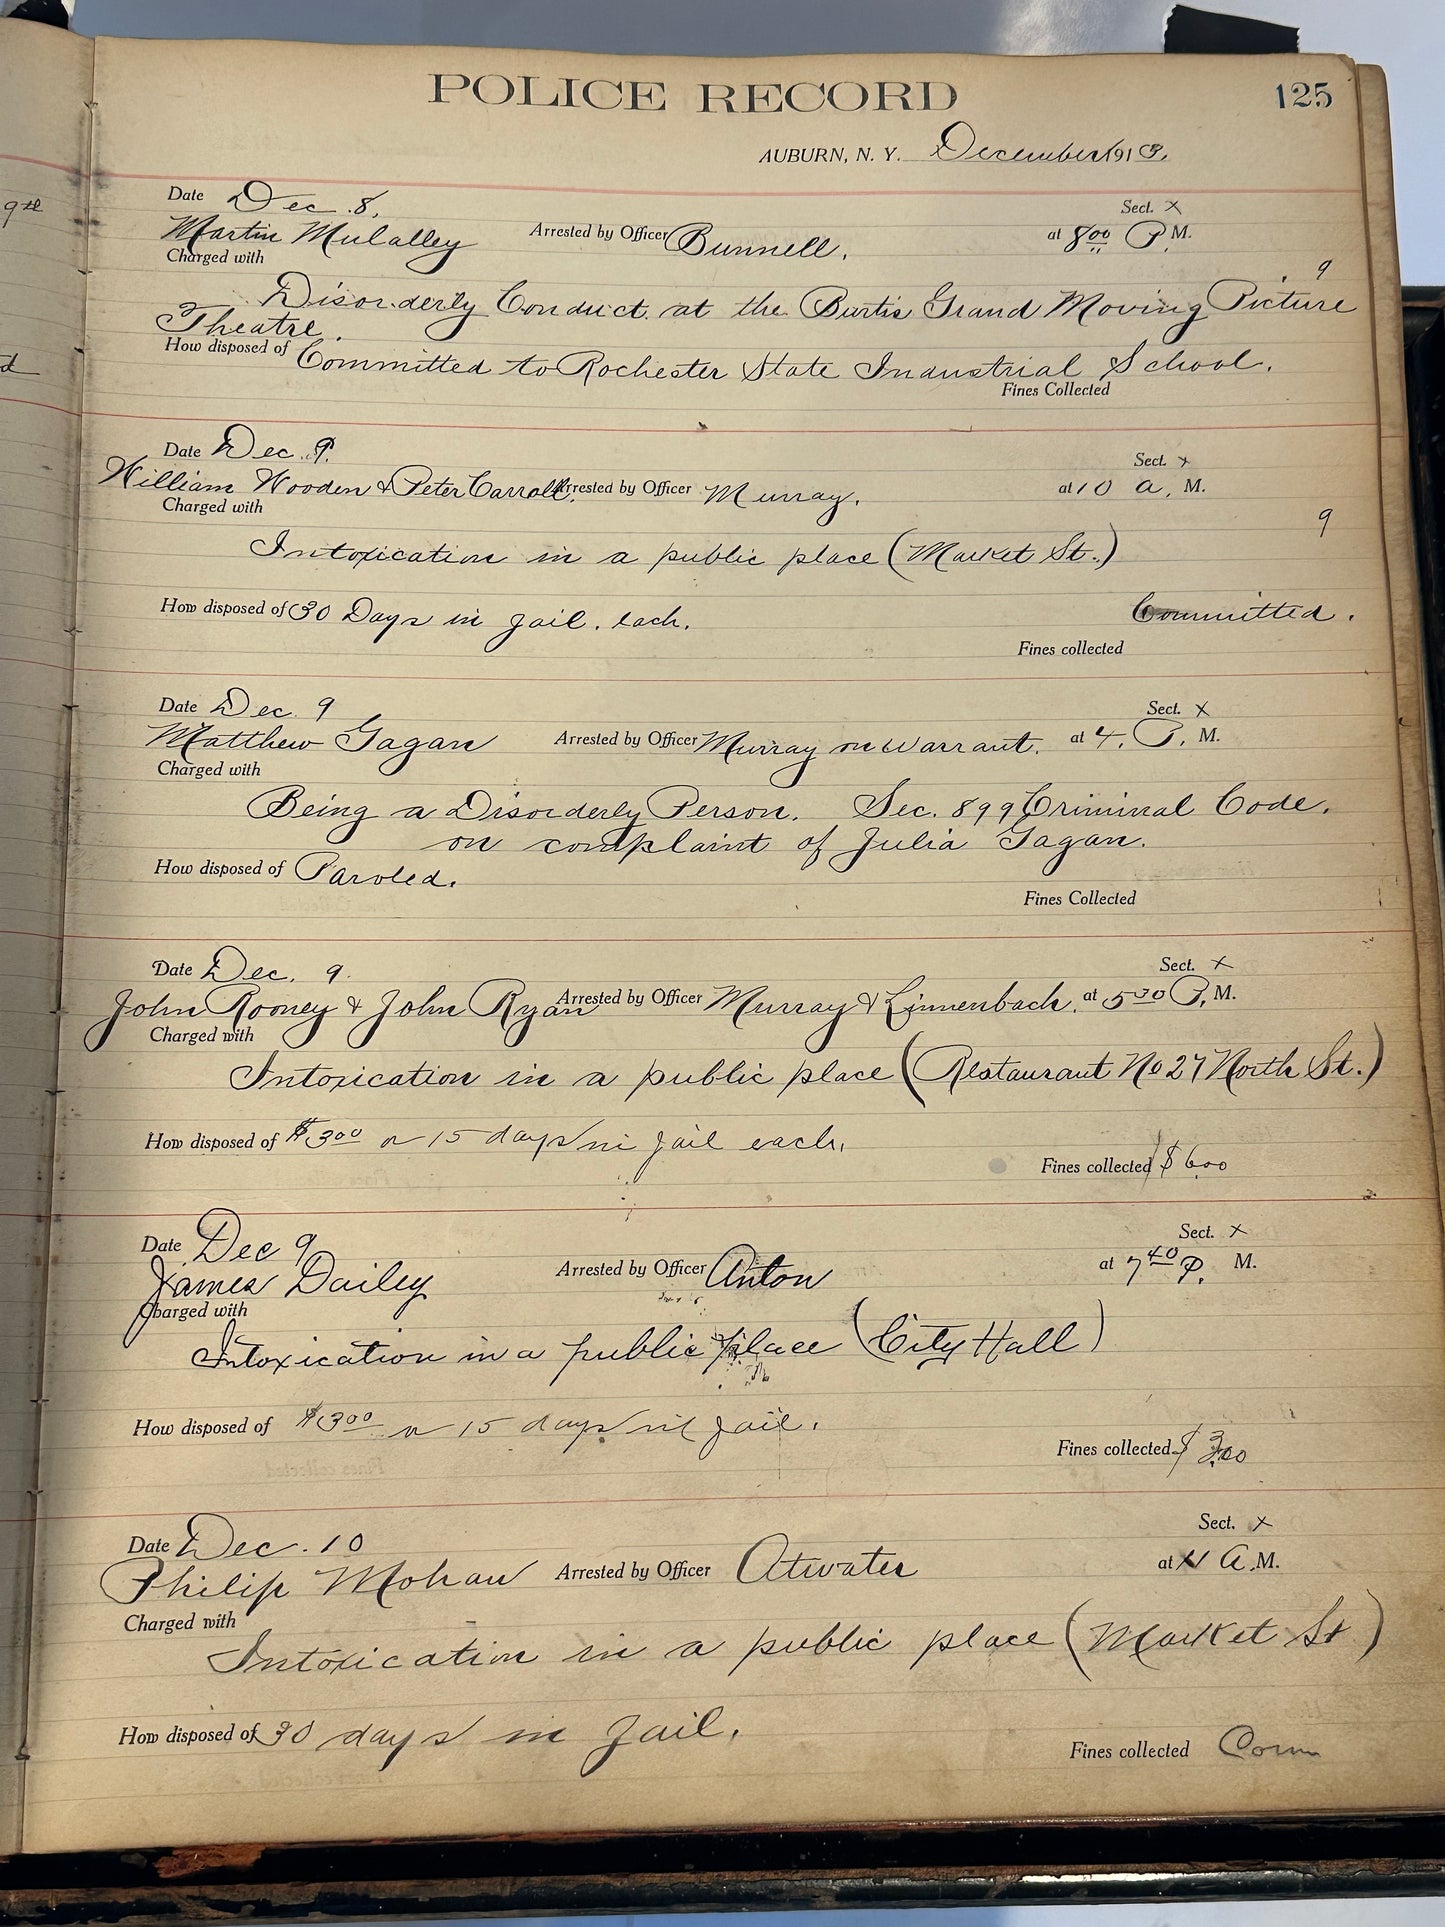 POLICE RECORD 125
AUBURN, N. Y. December 1913.
9th
Date Dec. 8, Sect. x
Martin Mulalley Arrested by Officer Bunnell. at 8 00 P. M.
Charged with
9
Disorderly Conduct at the Burtis Grand Moving Picture
Theatre.
How disposed of Committed to Rochester State Industrial School.
Fines Collected
Date Dec. 9. Sect. x
William Wooden & Peter Carroll. Arrested by Officer Murray. at 10 a. M.
Charged with
9
Intoxication in a public place (Market St.)
How disposed of 30 Days in jail. each. Committed.
Fines collected
Date Dec. 9 Sect. x
Matthew Gagan Arrested by Officer Murray on warrant. at 4. P. M.
Charged with
Being a Disorderly Person. Sec. 899 Criminal Code.
on complaint of Julia Gagan.
How disposed of Paroled.
Fines Collected
Date Dec. 9. Sect. x
John Rooney & John Ryan Arrested by Officer Murray & Linnenbach. at 5 30 P. M.
Charged with
Intoxication in a public place (Restaurant No 27 North St.)
How disposed of $3 00 or 15 days in jail each.
Fines collected $6.00
Date Dec 9 Sect. x
James Dailey Arrested by Officer Anton at 7 40 P. M.
Charged with
Intoxication in a public place (City Hall)
How disposed of $3 00 or 15 days in jail.
Fines collected $3.00
Date Dec. 10 Sect. x
Philip Mohan Arrested by Officer Atwater at 11 A. M.
Charged with
Intoxication in a public place (Market St)
How disposed of 30 days in jail.
Fines collected Com